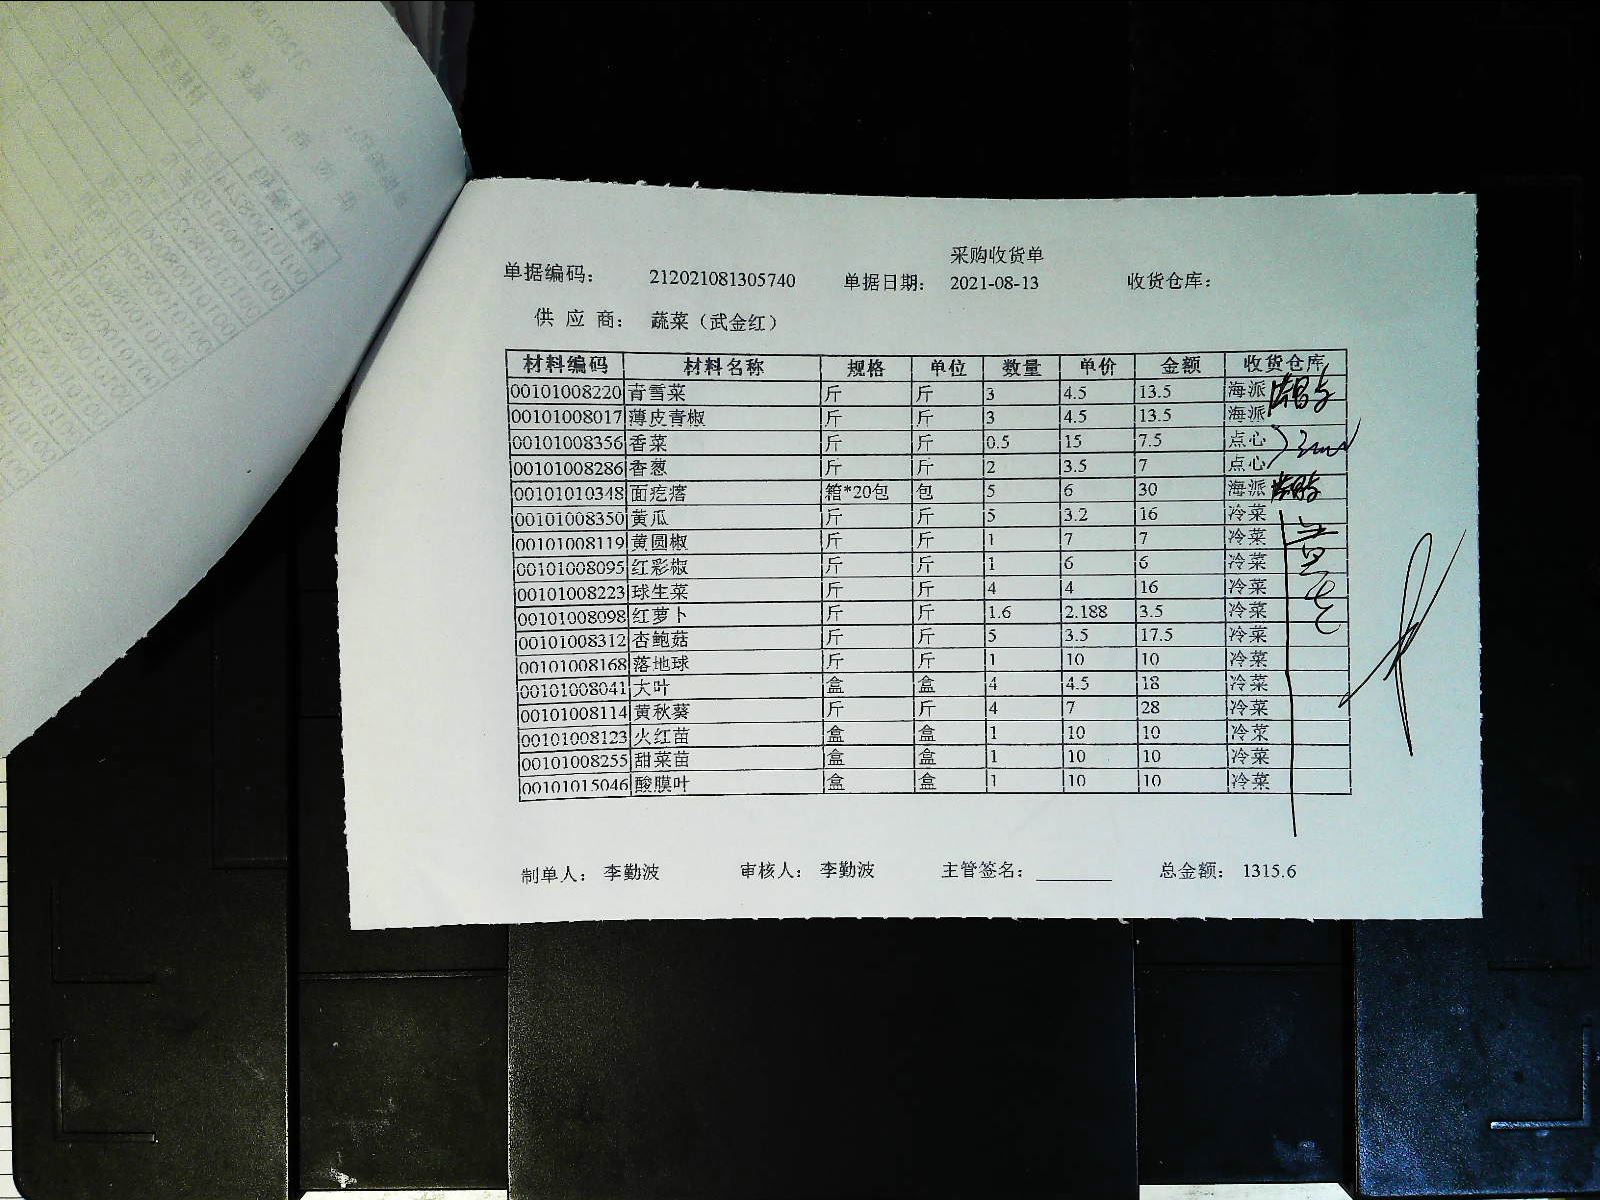 采购收货单
单据编码： 212021081305740 单据日期： 2021-08-13 收货仓库：
供 应 商： 蔬菜（武金红）
材料编码 材料名称 规格 单位 数量 单价 金额 收货仓库
00101008220 青雪菜 斤 斤 3 4.5 13.5 海派
00101008017 薄皮青椒 斤 斤 3 4.5 13.5 海派
00101008356 香菜 斤 斤 0.5 15 7.5 点心
00101008286 香葱 斤 斤 2 3.5 7 点心
00101010348 面疙瘩 箱*20包 包 5 6 30 海派
00101008350 黄瓜 斤 斤 5 3.2 16 冷菜
00101008119 黄圆椒 斤 斤 1 7 7 冷菜
00101008095 红彩椒 斤 斤 1 6 6 冷菜
00101008223 球生菜 斤 斤 4 4 16 冷菜
00101008098 红萝卜 斤 斤 1.6 2.188 3.5 冷菜
00101008312 杏鲍菇 斤 斤 5 3.5 17.5 冷菜
00101008168 落地球 斤 斤 1 10 10 冷菜
00101008041 大叶 盒 盒 4 4.5 18 冷菜
00101008114 黄秋葵 斤 斤 4 7 28 冷菜
00101008123 火红苗 盒 盒 1 10 10 冷菜
00101008255 甜菜苗 盒 盒 1 10 10 冷菜
00101015046 酸膜叶 盒 盒 1 10 10 冷菜
制单人： 李勤波 审核人： 李勤波 主管签名： 总金额： 1315.6